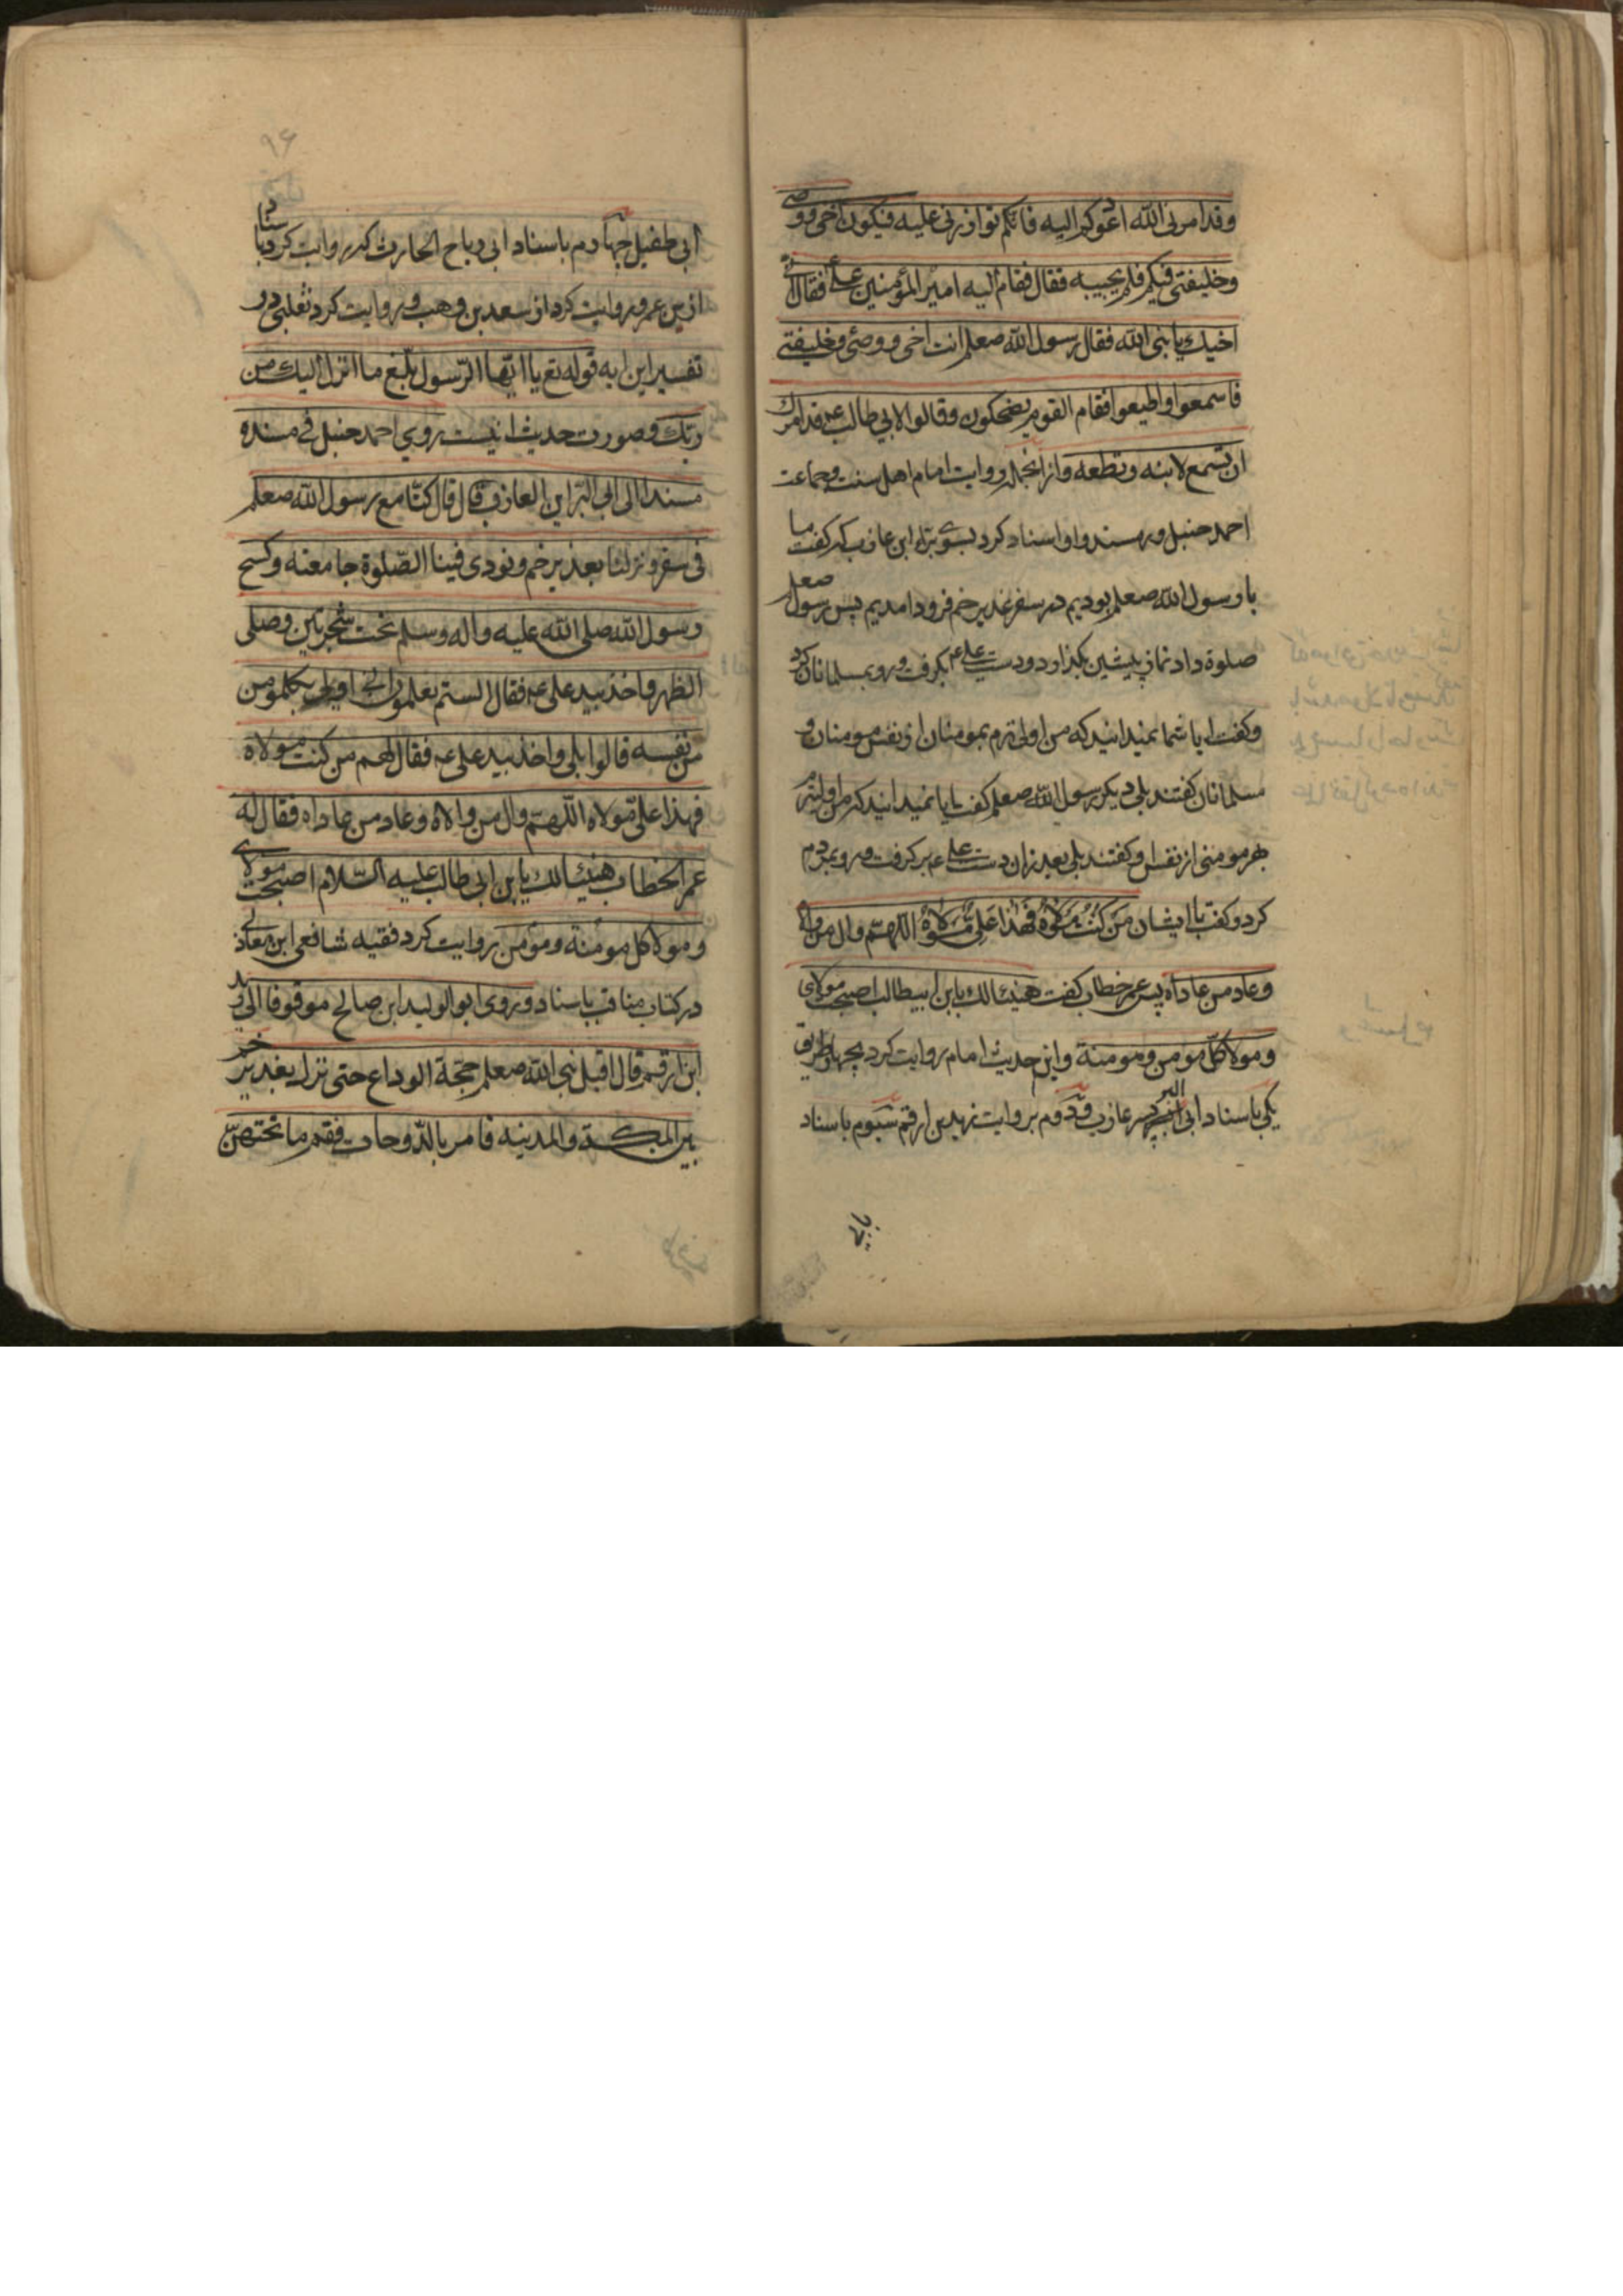 وقد امرنی الله ادعوکم الیه فایکم یوازرنی علیه فیکون اخی ووصی
وخلیفتی فیکم فلم یجیبه فقال فقام الیه امیر المؤمنین علی فقال انی
اخیك یا نبی الله فقال رسول الله صعلم انت اخی ووصی وخلیفتی
فاسمعوا واطیعوا فقام القوم یضحکون وقالوا لابی طالب عم قد امرك
ان تسمع لابنه وتطعه واز انجمله روایت امام اهل سنت وجماعت
احمد حنبل در مسند و او اسناد کرد بسوی براء ابن عازب که کفت ما
با رسول الله صعلم بودیم در سفر غدیر خم فرود امدیم پس رسول صعلم
صلوة داد نماز پیشین بکذارد و دست علی عم بکرفت و رو بمسلمانان کرد
وکفت ایا شما نمیدانید که من اولی ترم بمومنان از نفس مومنان و
مسلمانان کفتند بلی دیکر رسول الله صعلم کفت ایا نمیدانید که من اولیترم
بهر مومنی از نفس او کفتند بلی بعد ازان دست علی عم بر کرفت و رو بمردم
کرد وکفت با ایشان مَن کُنْتُ مَوْلاهُ فَهٰذا عَلِیٌّ مَوْلاهُ اللّهمّ وال من والاه
وعاد من عاداه پس عمر خطاب کفت هنیئا لك یا بن ابیطالب اصبحت مولای
ومولا کلّ مومن ومومنة واین حدیث امام روایت کرد بچهار طریق
یکی باسناد ابی البر پسر عازب ودوم بروایت زید بن ارقم سیوم باسناد
بابی
۹۶
ابی طفیل چهارم باسناد ابی رباح الحارث که روایت کرد باسناد
از بن عمر و روایت کرد از سعد بن وهب و روایت کرد ثعلبی در
تفسیر این ایه قوله تع یا ایّها الرّسول بلّغ ما انزل الیك من
ربّك وصورت حدیث اینست روی احمد حنبل فی مسنده
مسندا الی ابی البراین العازب قال قال کنّا مع رسول الله صعلم
فی سفر ونزلنا بغدیر خم ونودی فینا الصّلوة جامعته وکسح
رسول الله صلی الله علیه واله وسلم تحت شجرتین وصلی
الظهر واخذ بید علی عم فقال الستم تعلمون انی اولی بکل مومن
من نفسه قالوا بلی واخذ بید علی عم فقال لهم من کنت مولاه
فهذا علی مولاه اللّهمّ وال من والاه وعاد من عاداه فقال له
عمر الخطاب هنیئا لك یا بن ابی طالب علیه السّلام اصبحت مولای
ومولا کل مومنة ومؤمن روایت کرد فقیه شافعی ابن مغازلی
در کتاب مناقب باسناد و روی ابوالولید ابن صالح موقوفا الی زید
ابن ارقم قال اقبل نبی الله صعلم حجّة الوداع حتی نزل بغدیر خم
بین المکة والمدینه فامر بالدّوحات فقم ما تحتهنّ